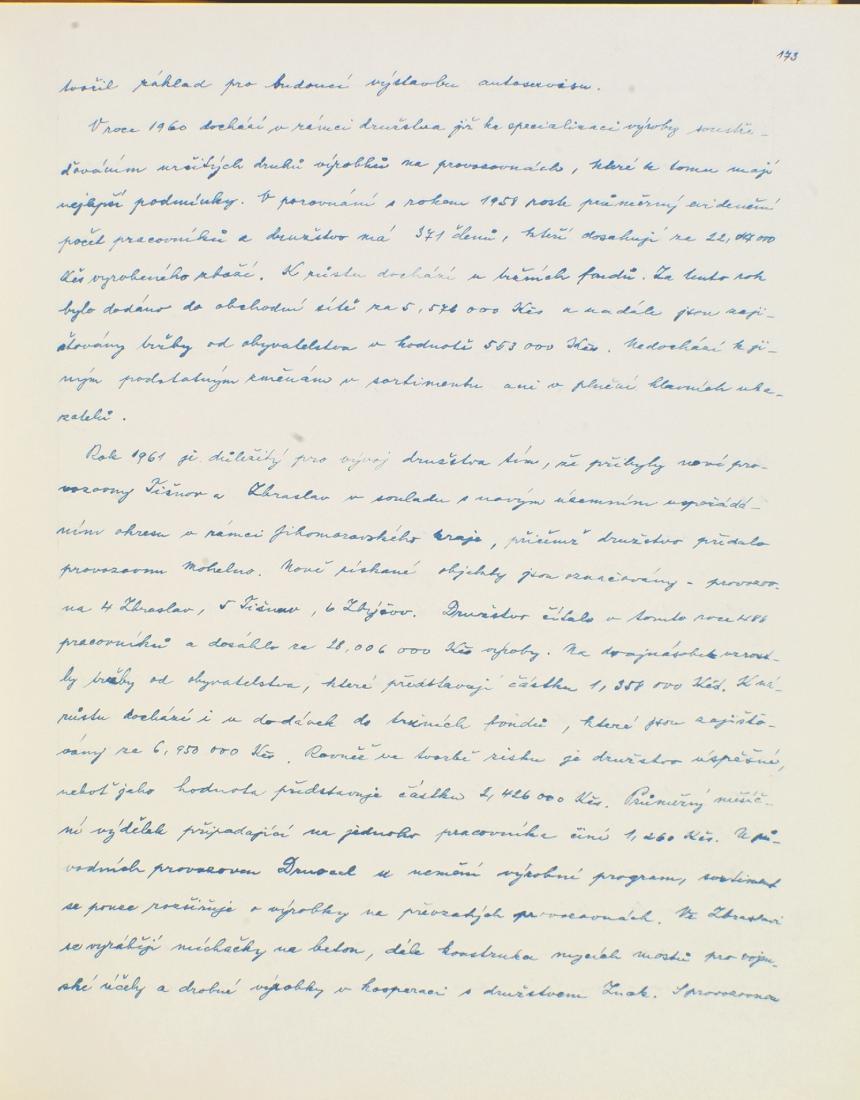 173
tvořil základ pro budoucí výstavbu autoservisu.
V roce 1960 dochází v rámci družstva již ke specializaci výroby soustře-
ďováním určitých druhů výrobků na provozovnách, které k tomu mají
nejlepší podmínky. V porovnání s rokem 1958 roste průměrný evidenční
počet pracovníků a družstvo má 371 členů, kteří dosahují za 22,
Kčs vyrobeného zboží. K růstu dochází u tržních fondů. Za tento rok
bylo dodáno do obchodní sítě za 5,576 000 Kčs a nadále jsou zaji-
šťovány tržby od obyvatelstva v hodnotě 553 000 Kčs. Nedochází k ji-
ným podstatným změnám v sortimentu ani v plnění hlavních uka-
zatelů.
Rok 1961 je důležitý pro vývoj družstva tím, že přibyly nové pro-
vozovny Tišnov a Zbraslav v souladu s novým územním uspořádá-
ním okresu v rámci Jihomoravského kraje, přičemž družstvo předalo
provozovnu Mohelno. Nově získané objekty jsou označovány - provozov.
na 4 Zbraslav, 5 Tišnov, 6 Zbýšov. Družstvo čítalo v tomto roce 486
pracovníků a dosáhlo za 28,006 000 Kčs výroby. Na dvojnásobek vzrost-
ly tržby od obyvatelstva, které představují částku 1,358 000 Kčs. K ná-
růstu dochází i u dodávek do tržních fondů, které jsou zajišťo-
vány za 6,950 000 Kčs. Rovněž ve tvorbě zisku je družstvo úspěšné,
neboť jeho hodnota představuje částku 2,426 000 Kčs. Průměrný měsíč-
ní výdělek připadající na jednoho pracovníka činí 1,260 Kčs. U pů-
vodních provozoven Druocel se nemění výrobní program, sortiment
se pouze rozšiřuje o výrobky na převzatých provozovnách. Ve Zbraslavi
se vyrábějí míchačky na beton, dále konstrukce mycích mostů pro vojen-
ské účely a drobné výrobky v kooperaci s družstvem Znak. S provozovnou